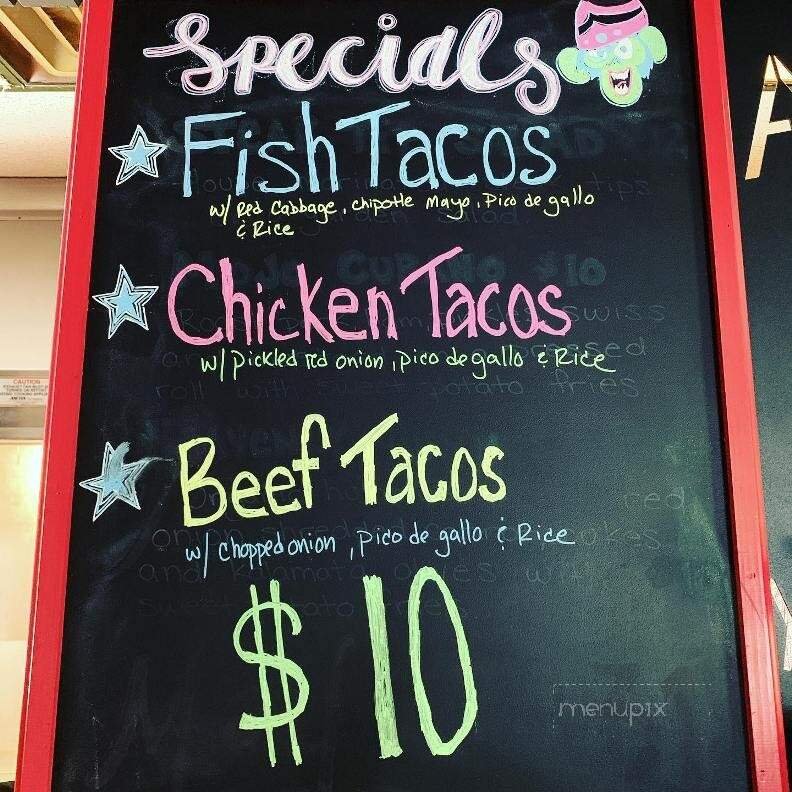 Specials
Fish Tacos
w/ Red Cabbage, chipotle Mayo, Pico de gallo
& Rice
Chicken Tacos
w/ Pickled red onion, pico de gallo & Rice
Beef Tacos
w/ chopped onion, pico de gallo & Rice
$10
menupix
CAUTION